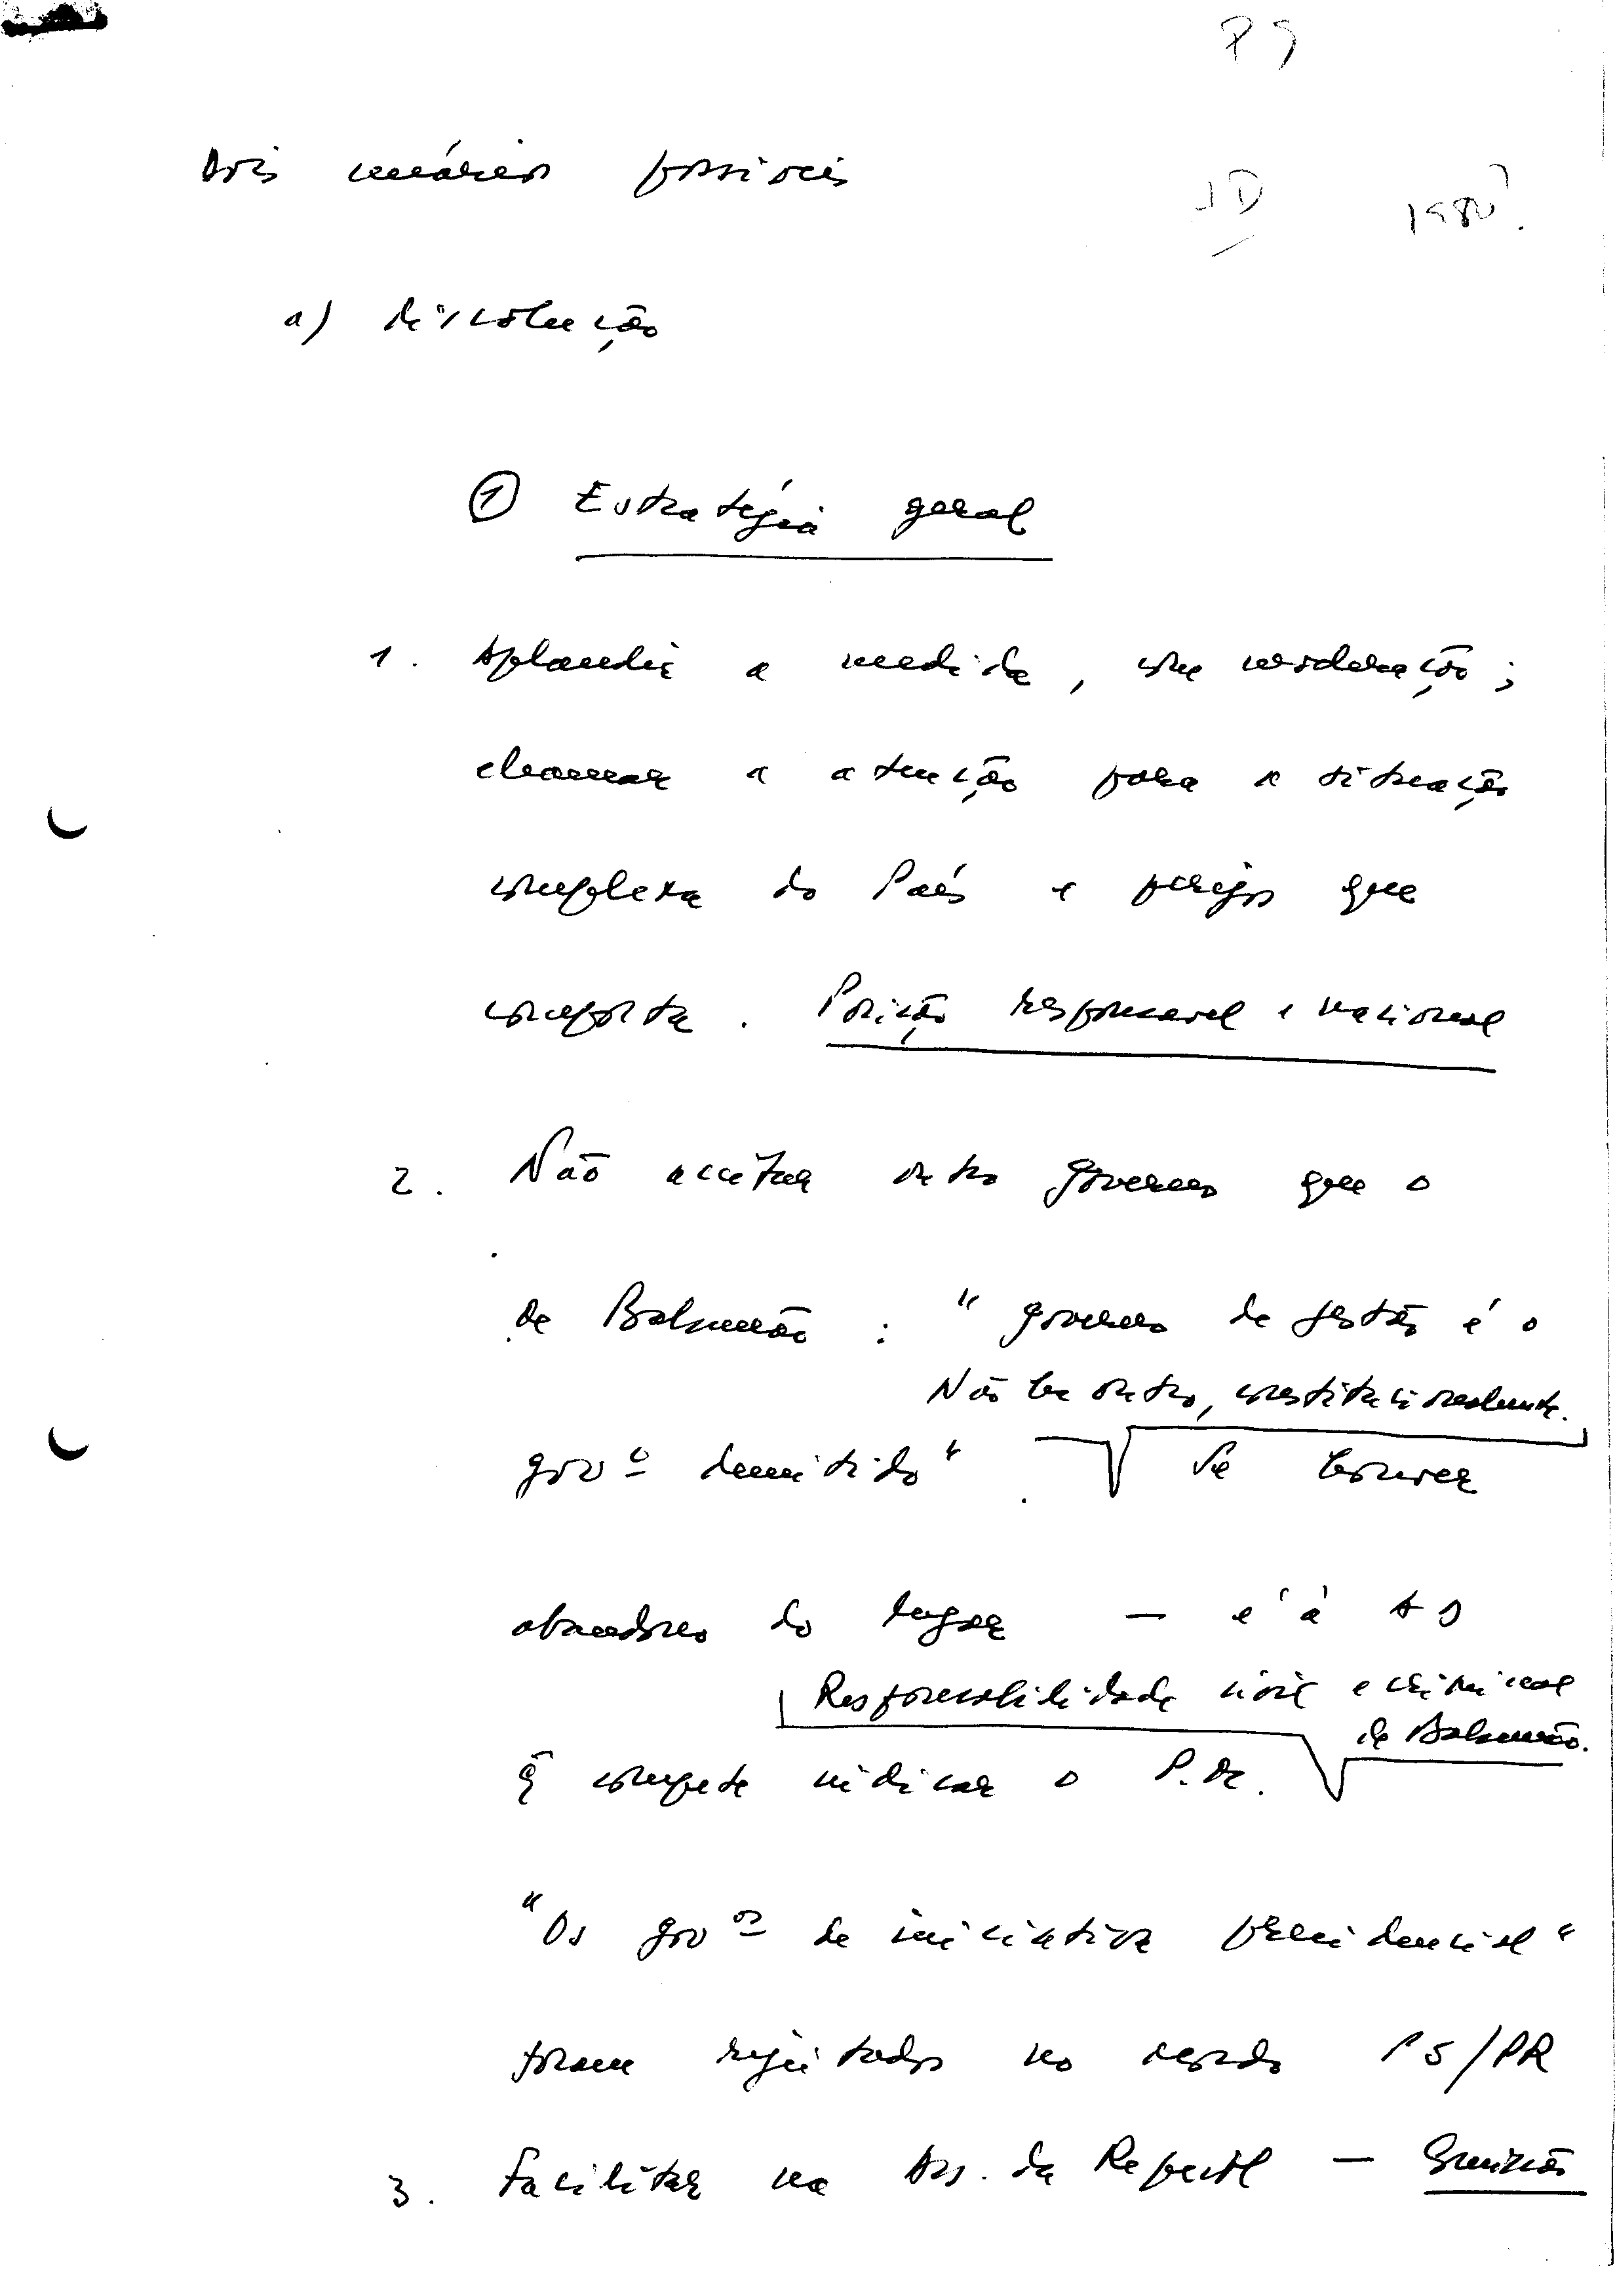 PS
Dois cenários possíveis
JD 1980?
a) dissolução
① Estratégia geral
1. Aplaudir a medida, com moderação;
chamar a atenção para a situação
complexa do País e perigos que
comporta. Posição responsável e nacional
2. Não aceitar outro governo que o
de Balsemão : "governo de gestão é o
Não há outro, constitucionalmente.
govº demitido". Se houver
abandono do lugar — é à AD
Responsabilidade civil e criminal
de Balsemão.
q̃ compete indicar o P.M.
"Os govºs de iniciativa presidencial"
foram rejeitados no acordo PS/PR
3. Facilitar na Ass. da Repúbl —